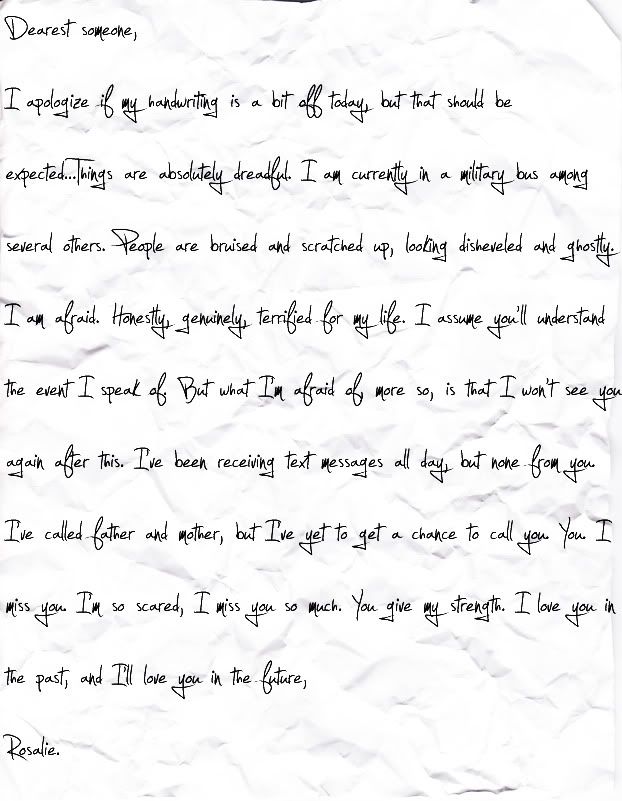 Dearest someone,
I apologize if my handwriting is a bit off today, but that should be
expected...Things are absolutely dreadful. I am currently in a military bus among
several others. People are bruised and scratched up, looking disheveled and ghostly.
I am afraid. Honestly, genuinely, terrified for my life. I assume you'll understand
the event I speak of. But what I'm afraid of, more so, is that I won't see you
again after this. I've been receiving text messages all day, but none from you.
I've called father and mother, but I've yet to get a chance to call you. You. I
miss you. I'm so scared, I miss you so much. You give my strength. I love you in
the past, and I'll love you in the future,
Rosalie.